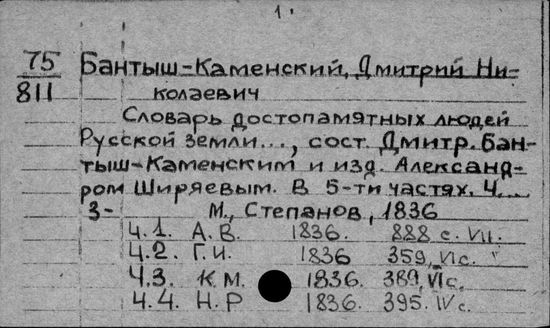 1.
75
811
Бантыш-Каменский, Дмитрий Ни-
колаевич
Словарь достопамятных людей
Русской земли..., сост. Дмитр. Бан-
тыш-Каменским и изд. Александ-
ром Ширяевым. В 5-ти частях. Ч....
3- М., Степанов, 1836
Ч.1. А.В. 1836. 888 с. VII.
Ч.2. Г.И. 1836 359, VI с.
Ч.3. К.М. 1836. 389, VI с.
Ч.4. Н.Р 1836. 395. IV с.